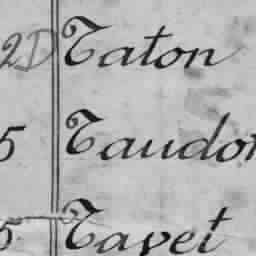 2D Taton
5 Taudon
5 Tayet